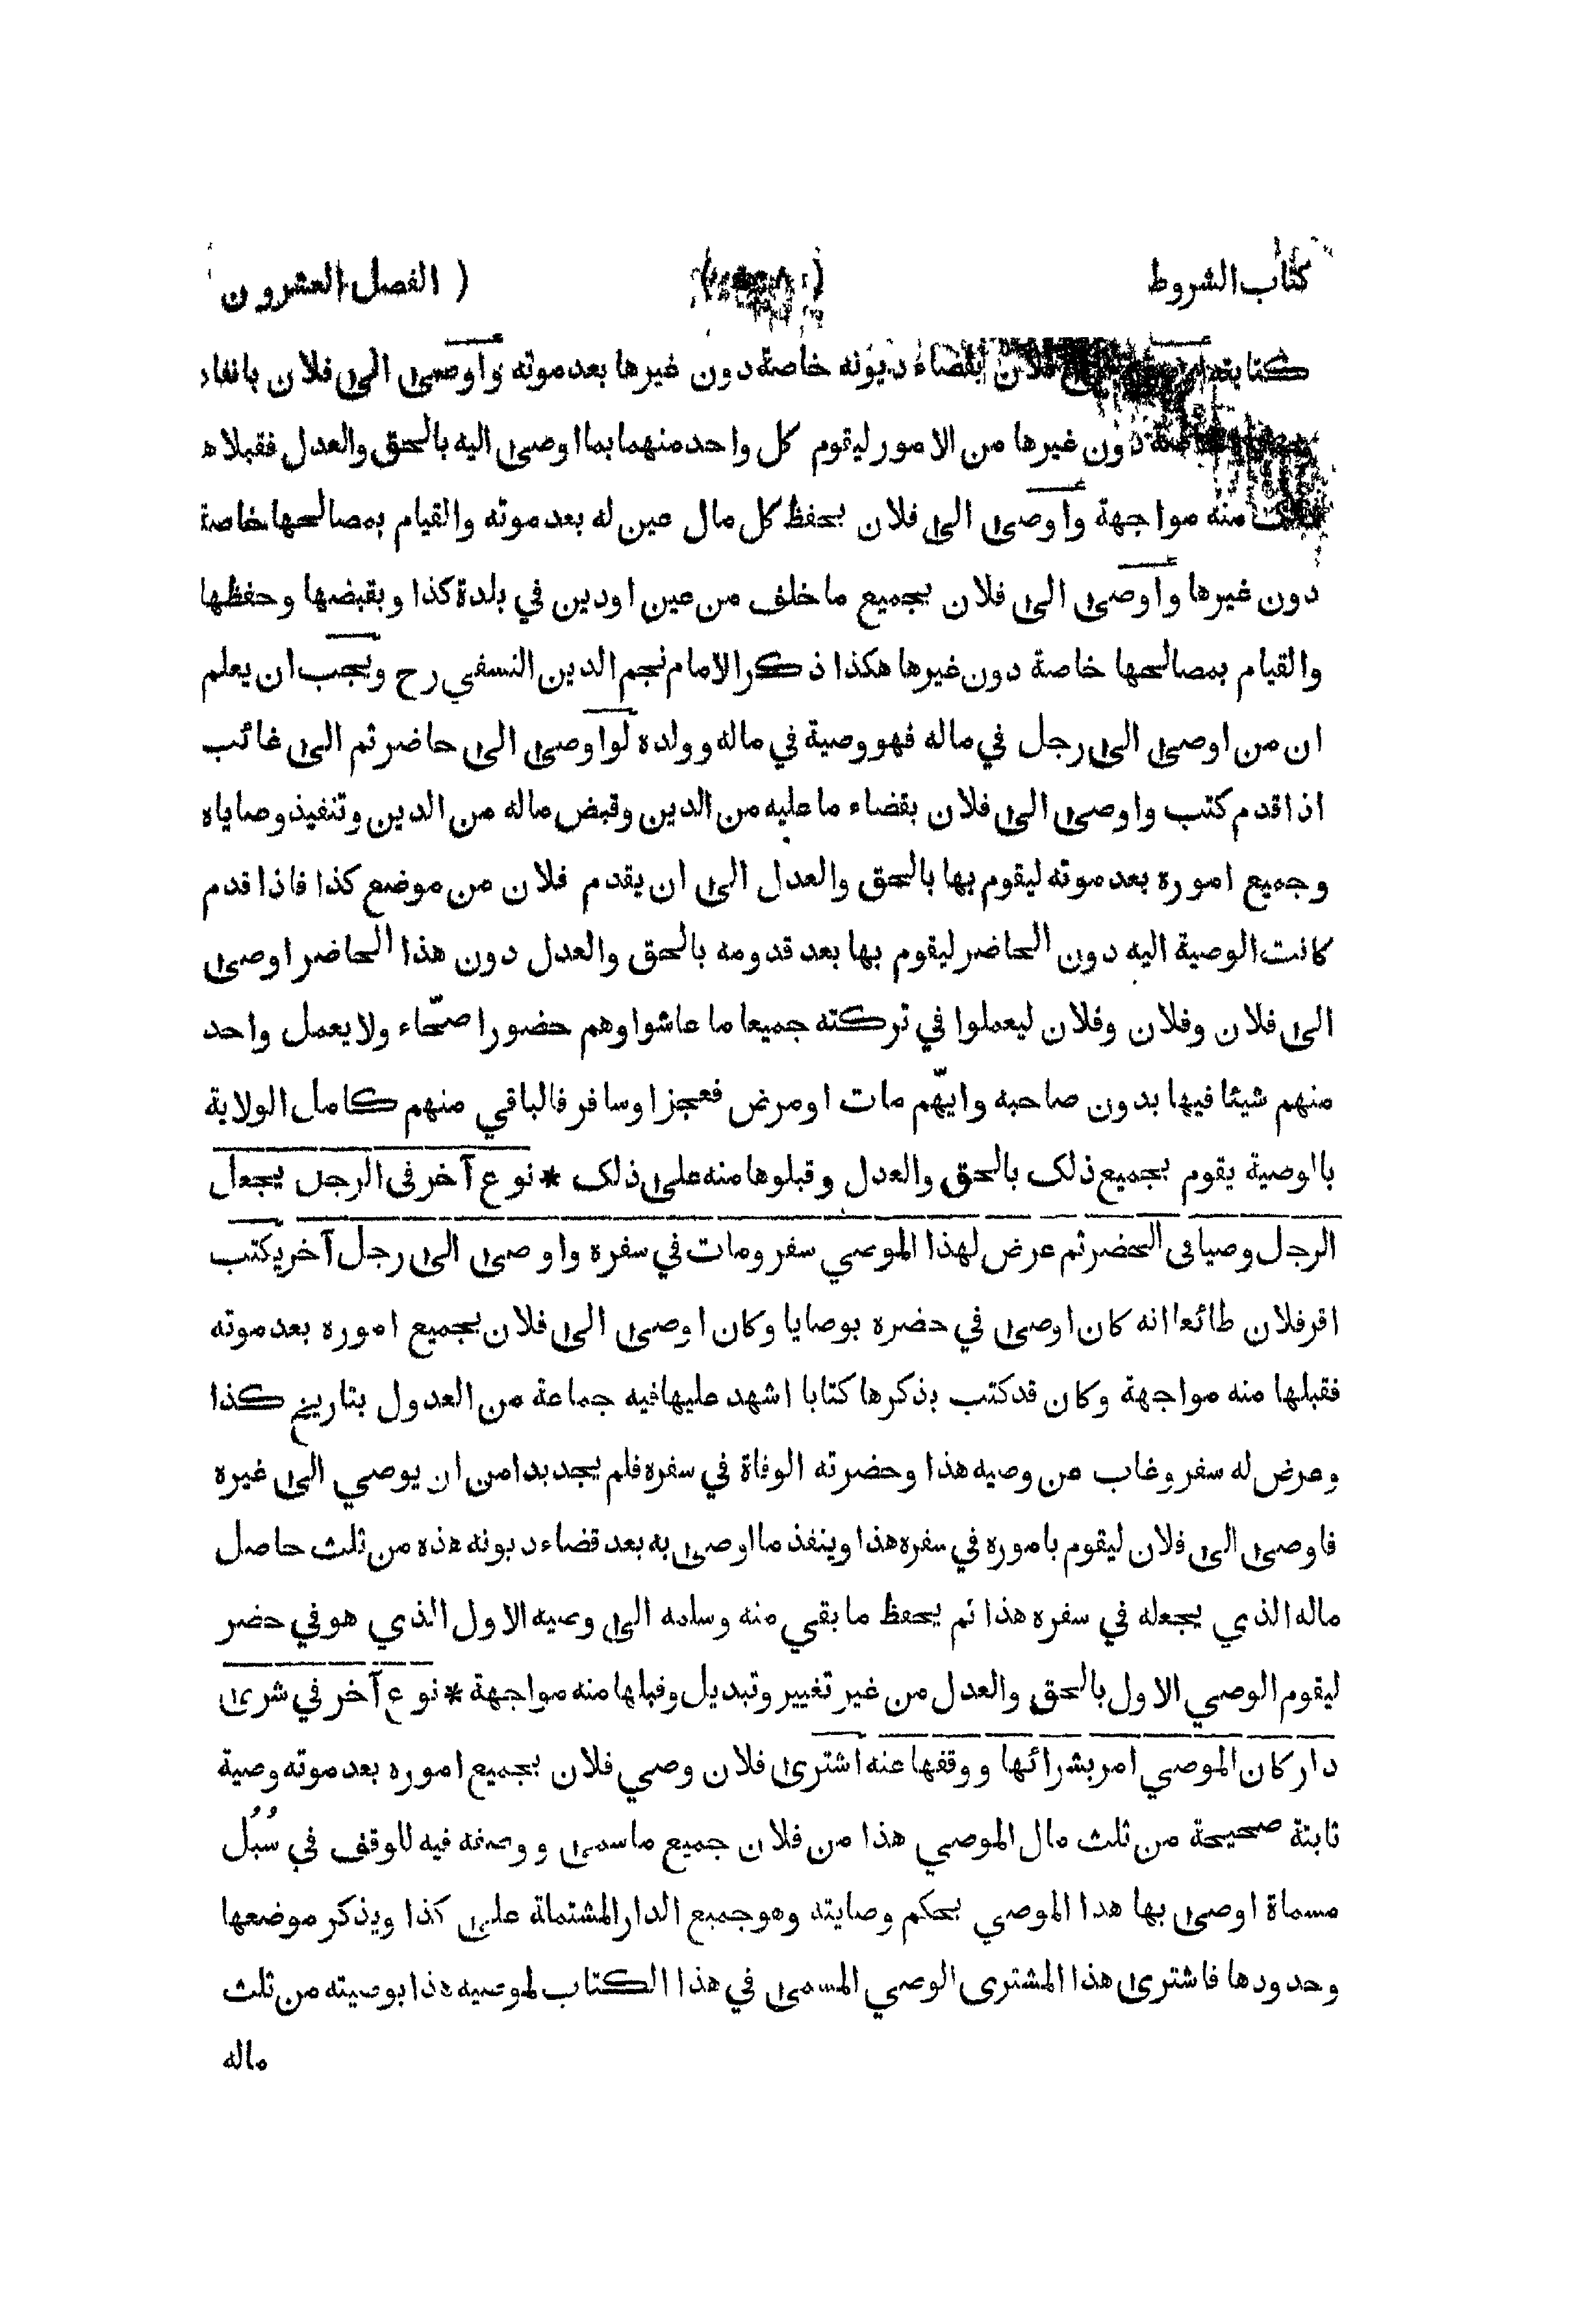 كتاب الشروط ( الفصل العشرون
كتابته فلان بقضاء ديونه خاصة دون غيرها بعد موته واوصى الى فلان بانفاد
دون غيرها من الامور ليقوم كل واحد منهما بما اوصى اليه بالحق والعدل فقبلا ه
منه مواجهة واوصى الى فلان بحفظ كل مال عين له بعد موته والقيام بمصالحها خاصة
دون غيرها واوصى الى فلان بجميع ما خلف من عين اودين في بلدة كذا وبقبضها وحفظها
والقيام بمصالحها خاصة دون غيرها هكذا ذكر الامام نجم الدين النسفي رح ويجب ان يعلم
ان من اوصى الى رجل في ماله فهو وصية في ماله وولده لو اوصى الى حاضر ثم الى غائب
اذا قدم كتب واوصى الى فلان بقضاء ما عليه من الدين وقبض ماله من الدين وتنفيذ وصاياه
وجميع اموره بعد موته ليقوم بها بالحق والعدل الى ان يقدم فلان من موضع كذا فاذا قدم
كانت الوصية اليه دون الحاضر ليقوم بها بعد قدومه بالحق والعدل دون هذا الحاضر اوصى
الى فلان وفلان وفلان ليعملوا في تركته جميعا ما عاشوا وهم حضورا صحّاء ولا يعمل واحد
منهم شيئا فيها بدون صاحبه وايّهم مات اومرض فعجز اوسافر فالباقي منهم كامل الولاية
بالوصية يقوم بجميع ذلك بالحق والعدل وقبلوها منه على ذلك * نوع آخر فى الرجل يجعل
الرجل وصيا فى الحضر ثم عرض لهذا الموصي سفر ومات في سفره واوصى الى رجل آخر يكتب
اقر فلان طائعا انه كان اوصى في حضره بوصايا وكان اوصى الى فلان بجميع اموره بعد موته
فقبلها منه مواجهة وكان قد كتب بذكرها كتابا اشهد عليها فيه جماعة من العدول بتاريخ كذا
وعرض له سفر وغاب عن وصيه هذا وحضرته الوفاة في سفره فلم يجد بدا من ان يوصي الى غيره
فاوصى الى فلان ليقوم باموره في سفره هذا وينفذ ما اوصى به بعد قضاء ديونه هذه من ثلث حاصل
ماله الذي يجعله في سفره هذا ثم يحفظ ما بقي منه وسلمه الى وصيه الاول الذي هو في حضر
ليقوم الوصي الاول بالحق والعدل من غير تغيير وتبديل وقبلها منه مواجهة * نوع آخر في شرى
دار كان الموصي امر بشرائها ووقفها عنه اشترى فلان وصي فلان بجميع اموره بعد موته وصية
ثابتة صحيحة من ثلث مال الموصي هذا من فلان جميع ما سمى ووصفه فيه للوقف في سُبُل
مسماة اوصى بها هدا الموصي بحكم وصايته وهو جميع الدار المشتملة على كذا ويذكر موضعها
وحدودها فاشترى هذا المشترى الوصي المسمى في هذا الكتاب لموصيه هذا بوصيته من ثلث
ماله